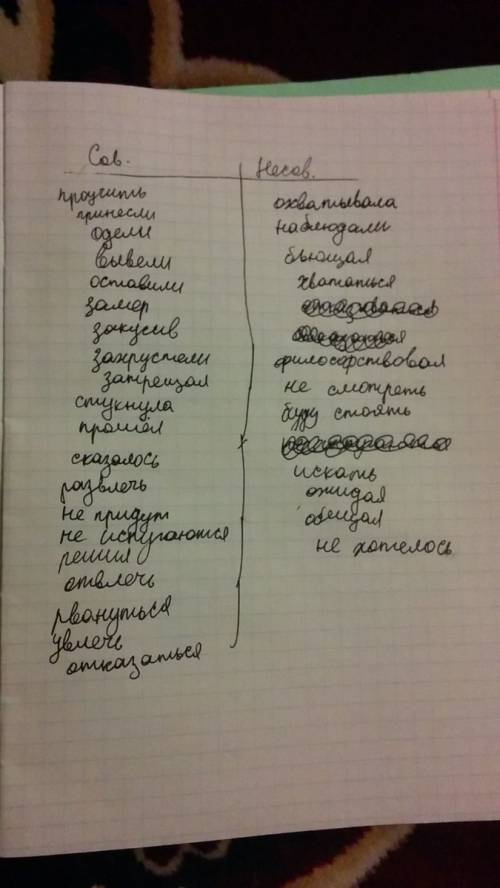 Сов.
проучить
принесли
одели
вывели
оставили
замер
закусив
захрустели
затрещал
стукнула
прошёл
сказалось
развлечь
не придут
не испугаются
решил
отвлечь
рвануться
увлечь
отказаться
Несов.
охватывала
наблюдали
бьющая
хвататься
философствовал
не смотреть
буду стоять
искать
ожидая
обещал
не хотелось